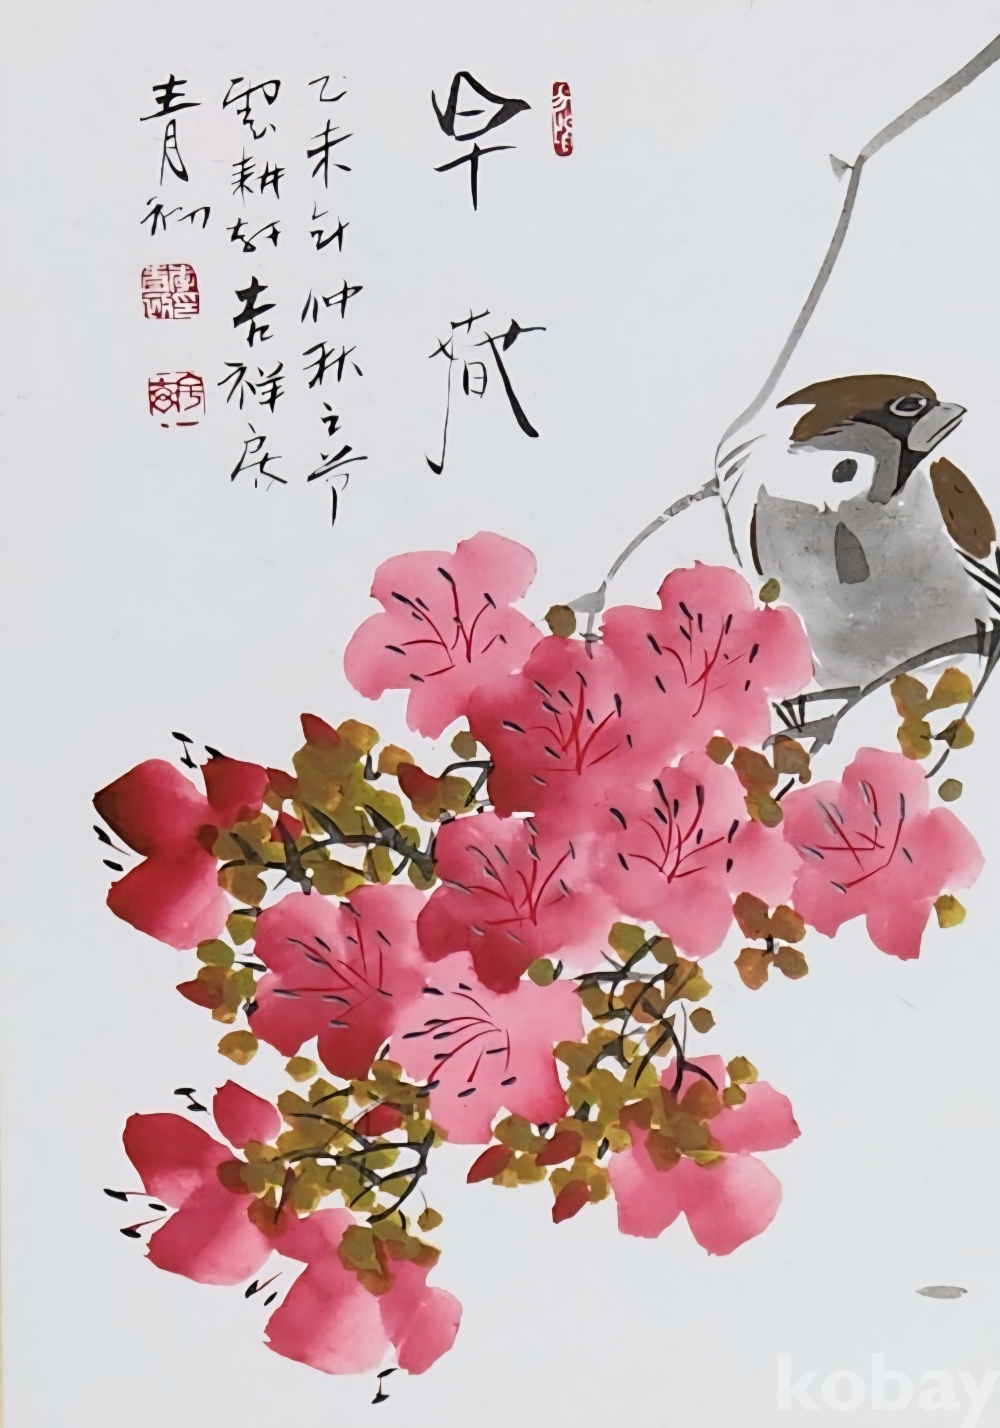 早
乙未年仲秋之节
雲耕軒吉祥居
青初
kobay